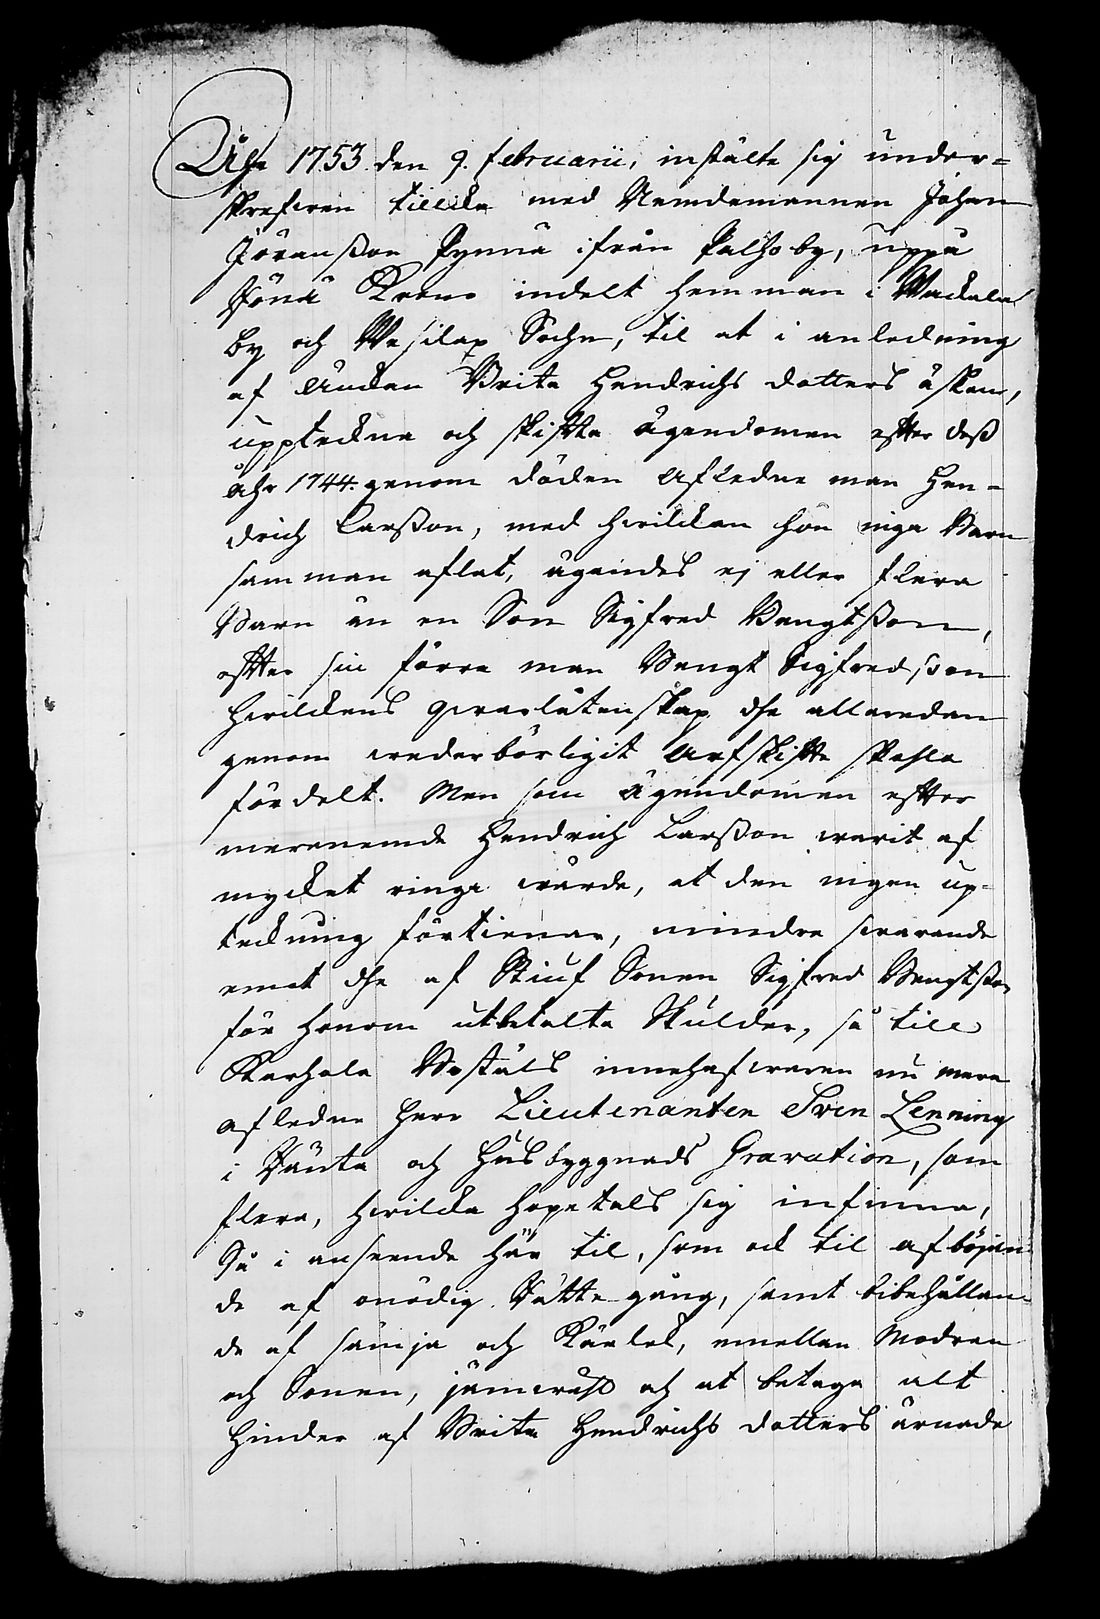 Åhr 1753 den 9. februarii, instälte sig under-
skrefwen tillika med Nemdemannen Johan
Jöransson Pynnä ifrån Palho by, uppå
Jöna Krono indelt hemman i Wackala
by och Wesilax Sochn, til at i anledning
af Enckan Brita Hendrichs dotters åstan,
uppteckna och skiffta Ägendomen effter dess
åhr 1744. genom döden afledne man Hen-
drich Larsson, med hwilcken hon inga Barn
samman aflat, ägandes ej eller flera
Barn än en Son Sigfred Bengtsson,
effter sin förra man Bengt Sigfredsson
hwilckens qwarlåtenskap dhe allaredan
genom wederbörligit Arfskiffte skohla
fördelt. Men som Ägendomen effter
merenemde Hendrich Larsson warit af
mycket ringa wärde, at den ingen up-
teckning förtienar, mindre swarande
emot dhe af Stiuf Sonen Sigfred Bengtsson
för honom utbetalta Skulder, så till
Karhola Boställs innehafwaren nu mera
afledne Herr Lieutenanten Sven Lenning
i Ränta och Husbyggnads Gravation, som
flera, hwilcka hopetals sig infinna,
Så i anseende här til, som ock til afböjan-
de af onödig Rätte-gång, samt bibehållan-
de af sämja och Kärlek, emellan Modren
och Sonen, jämwähl och at betaga alt
hinder af Brita Hendrichs dotters ärnade